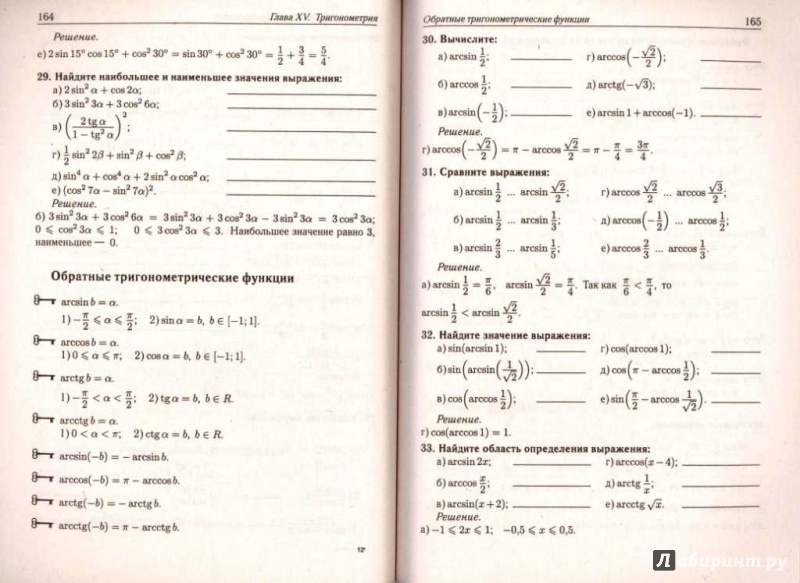 164 Глава XV. Тригонометрия
Решение.
е) 2 sin 15° cos 15° + cos² 30° = sin 30° + cos² 30° = 1/2 + 3/4 = 5/4.
29. Найдите наибольшее и наименьшее значения выражения:
а) 2 sin² α + cos 2α;
б) 3 sin² 3α + 3 cos² 6α;
в) (2 tg α / (1 − tg² α))²;
г) 1/2 sin² 2β + sin² β + cos² β;
д) sin⁴ α + cos⁴ α + 2 sin² α cos² α;
е) (cos² 7α − sin² 7α)².
Решение.
б) 3 sin² 3α + 3 cos² 6α = 3 sin² 3α + 3 cos² 3α − 3 sin² 3α = 3 cos² 3α;
0 ⩽ cos² 3α ⩽ 1; 0 ⩽ 3 cos² 3α ⩽ 3. Наибольшее значение равно 3,
наименьшее — 0.
Обратные тригонометрические функции
arcsin b = α.
1) −π/2 ⩽ α ⩽ π/2; 2) sin α = b, b ∈ [−1; 1].
arccos b = α.
1) 0 ⩽ α ⩽ π; 2) cos α = b, b ∈ [−1; 1].
arctg b = α.
1) −π/2 < α < π/2; 2) tg α = b, b ∈ R.
arcctg b = α.
1) 0 < α < π; 2) ctg α = b, b ∈ R.
arcsin(−b) = − arcsin b.
arccos(−b) = π − arccos b.
arctg(−b) = − arctg b.
arcctg(−b) = π − arcctg b.
12*
Обратные тригонометрические функции 165
30. Вычислите:
а) arcsin 1/2; г) arccos(−√2/2);
б) arccos 1/2; д) arctg(−√3);
в) arcsin(−1/2); е) arcsin 1 + arccos(−1).
Решение.
г) arccos(−√2/2) = π − arccos √2/2 = π − π/4 = 3π/4.
31. Сравните выражения:
а) arcsin 1/2 ... arcsin √2/2; г) arccos √2/2 ... arccos √3/2;
б) arcsin 1/2 ... arcsin 1/3; д) arccos(−1/2) ... arccos 1/2;
в) arcsin 2/3 ... arcsin 1/5; е) arccos 2/3 ... arccos 1/3.
Решение.
а) arcsin 1/2 = π/6, arcsin √2/2 = π/4. Так как π/6 < π/4, то
arcsin 1/2 < arcsin √2/2.
32. Найдите значение выражения:
а) sin(arcsin 1); г) cos(arccos 1);
б) sin(arcsin(1/√2)); д) cos(π − arccos 1/2);
в) cos(arccos 1/2); е) sin(π/2 − arccos 1/√2).
Решение.
г) cos(arccos 1) = 1.
33. Найдите область определения выражения:
а) arcsin 2x; г) arccos(x − 4);
б) arccos x/2; д) arctg 1/x;
в) arcsin(x + 2); е) arcctg √x.
Решение.
а) −1 ⩽ 2x ⩽ 1; −0,5 ⩽ x ⩽ 0,5.
Лабиринт.ру